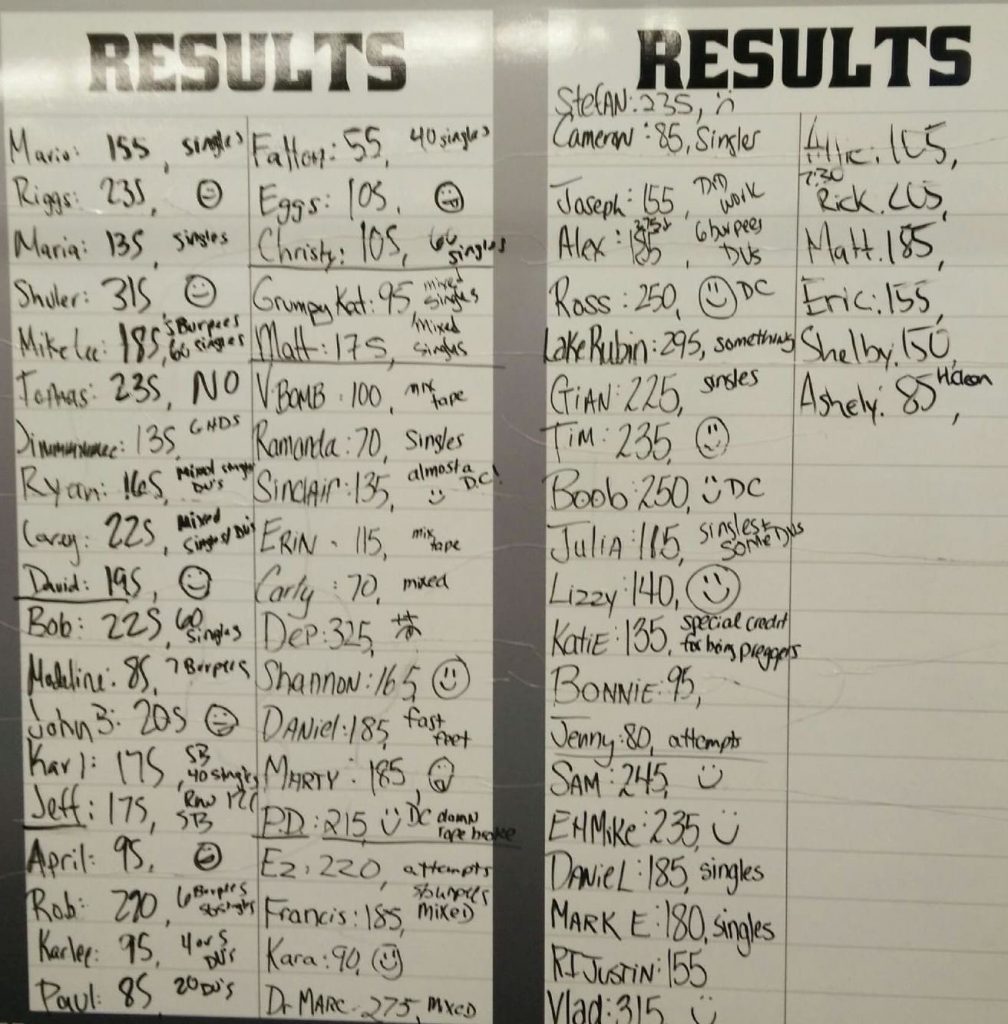 RESULTS
Mario: 155, singles
Riggs: 235,
Maria: 135, singles
Shuler: 315
Mike Lee: 185, 5 Burpees 60 singles
Tomas: 235, NO
135, GHDS
Ryan: 165, Mixed singles DU's
Corey: 225, Mixed Singles/DU's
David: 195,
Bob: 225, 60 singles
Madeline: 85, 7 Burpees
John B: 205
Karl: 175, SB 40 singles
Jeff: 175, Row SB
April: 95,
Rob: 290, 6 Burpees
Karlee: 95, 4 or 5 DU's
Paul: 85 20 DU's
Fallon: 55, 40 singles
Eggs: 105,
Christy: 105, 60 singles
Grumpy Kat: 95, mixed singles
Matt: 175, Mixed singles
V.BOMB: 100, mix tape
Ramanda: 70, Singles
SINCLAIR: 135, almost a DC!
ERIN - 115, mix tape
Carly: 70, mixed
DEP: 325,
Shannon: 165
DANIEL: 185, fast feet
MARTY: 185
P.D: 215 DC damn rope broke
EZ: 220, attempts
Francis: 185, 5 burpees MIXED
Kara: 90,
Dr MARC: 275, MIXED
RESULTS
STEFAN: 235, :(
Cameron: 85, Singles
Joseph: 155, DU WORK
Alex: 185, 6 burpees DUs
Ross: 250, DC
Lake Rubin: 295, something
GIAN: 225, singles
TIM: 235,
Boob: 250, DC
JULIA: 115, singles + some DUs
Lizzy: 140,
KATIE: 135, special credit for being preggers
BONNIE: 95,
Jenny: 80, attempts
SAM: 245,
EHMIKE: 235,
DANIEL: 185, singles
MARK E: 180, singles
RI JUSTIN: 155
Vlad: 315
105,
7:30
Rick. 205,
Matt. 185,
Eric: 155,
Shelby. 150,
Ashely: 85, H.clean